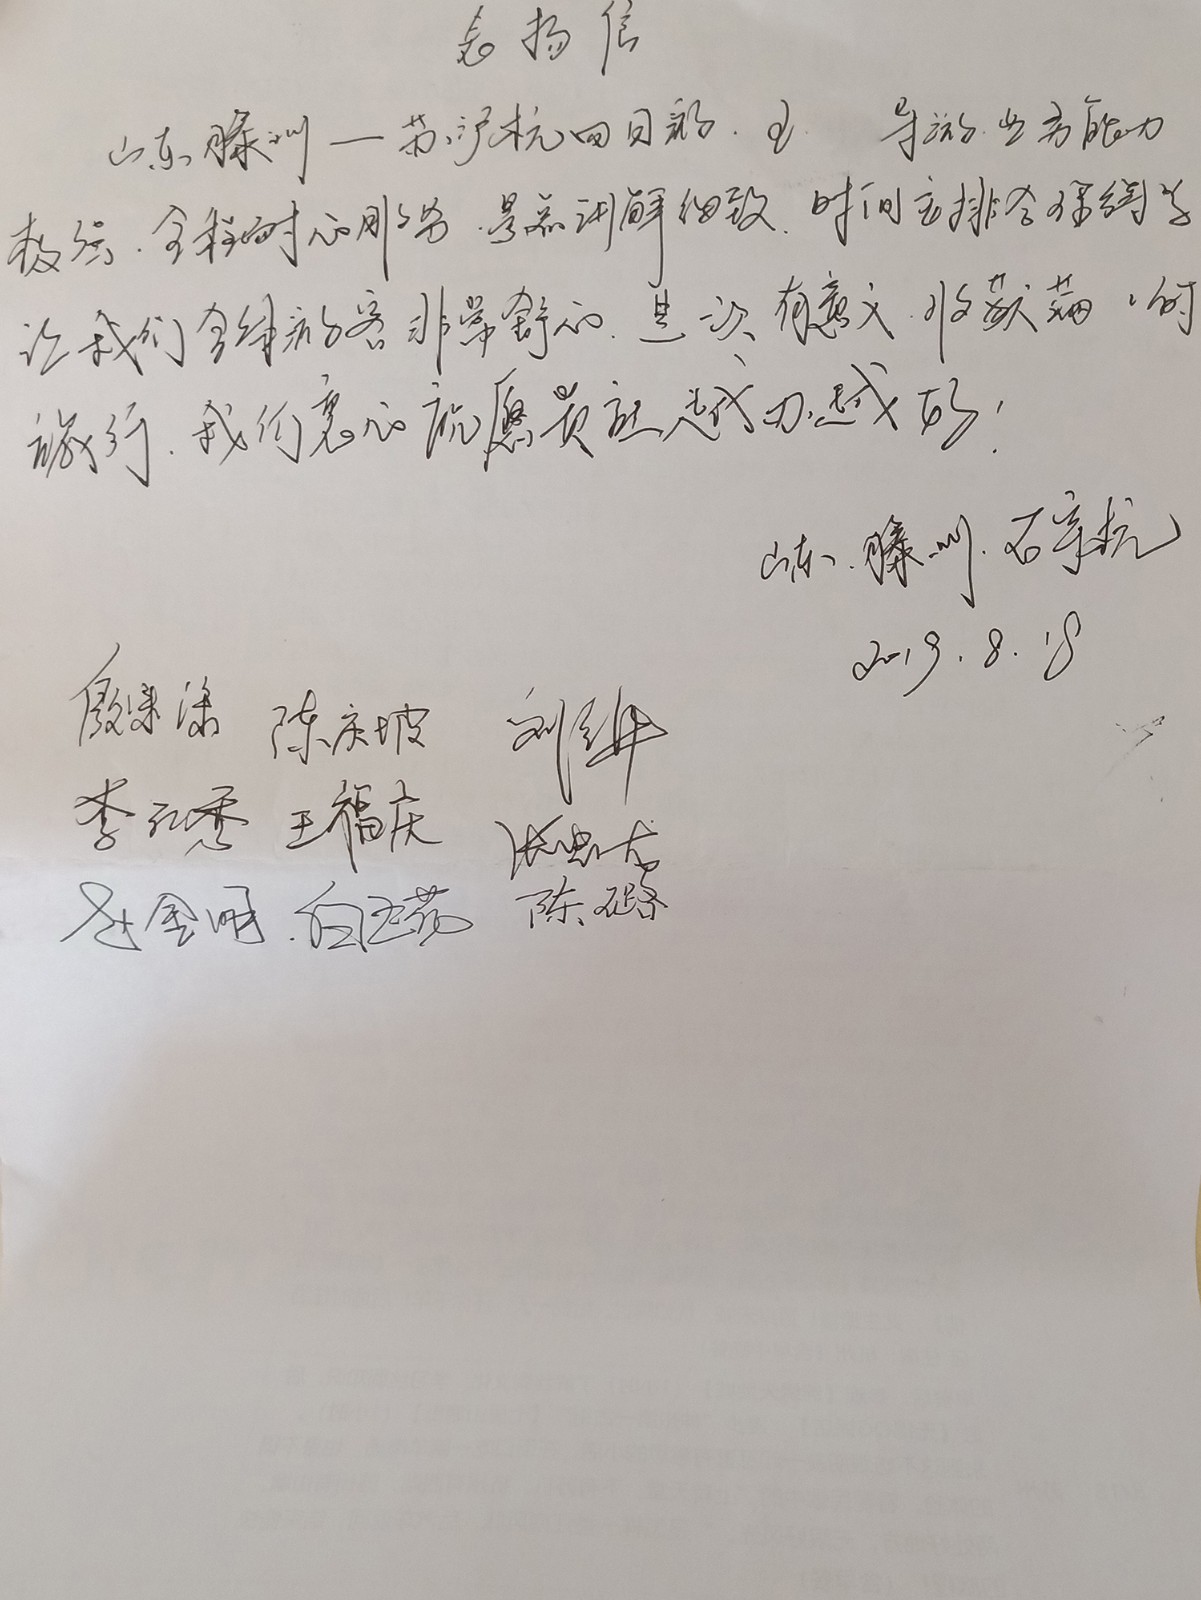 表扬信
山东滕州—苏沪杭四日游. 王 导游业务能力
极强. 全程耐心服务. 景点讲解细致. 时间安排合理得当
让我们全体游客非常舒心. 是一次有意义. 收获满满的
旅行. 我们衷心祝愿贵社越办越好!
山东. 滕州. 石宗杭
2019.8.18
陈庆坡
李红秀 王福庆
赵金明 白玉荷 陈璐